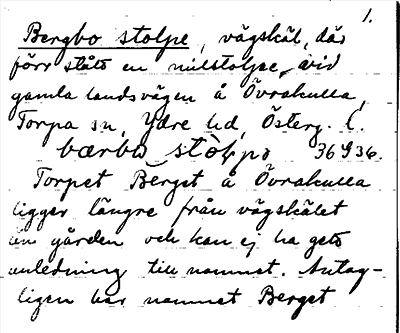 1.
Bergbo stolpe, vägskäl, där
förr stått en milstolpe, vid
gamla landsvägen å Övrakulla,
Torpa sn, Ydre hd, Österg. l.
bærbo stòlpo 36 9 36.
Torpet Berget å Övrakulla
ligger längre från vägskälet
än gården och kan ej ha gett
anledning till namnet. Antag-
ligen har namnet Berget